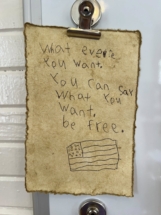 what ever
You want.
You can say
what you
want.
be free.